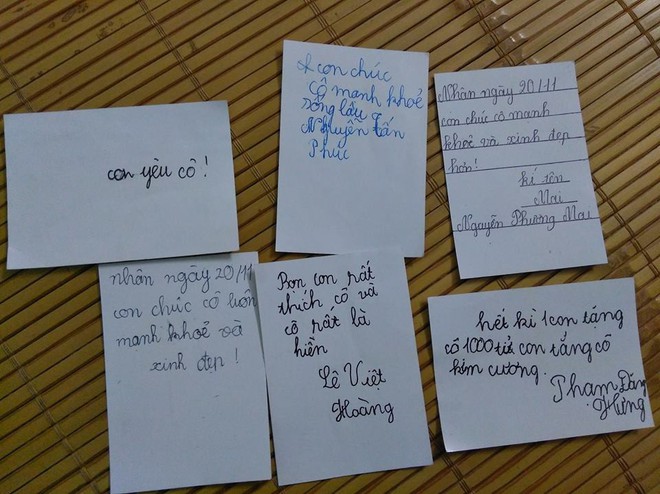 con yêu cô!
con chúc
cô mạnh khoẻ
sống lâu
Nguyễn tấn
Phúc
Nhân ngày 20/11
con chúc cô mạnh
khoẻ và xinh đẹp
hơn!
kí tên
Mai
Nguyễn Phương Mai
nhân ngày 20/11
con chúc cô luôn
mạnh khoẻ và
xinh đẹp!
Bọn con rất
thích cô và
cô rất là
hiền
Lê Việt
Hoàng
hết kì 1 con tặng
cô 1000 tỉ, con tặng cô
kim cương.
Phạm Đăng
Hưng